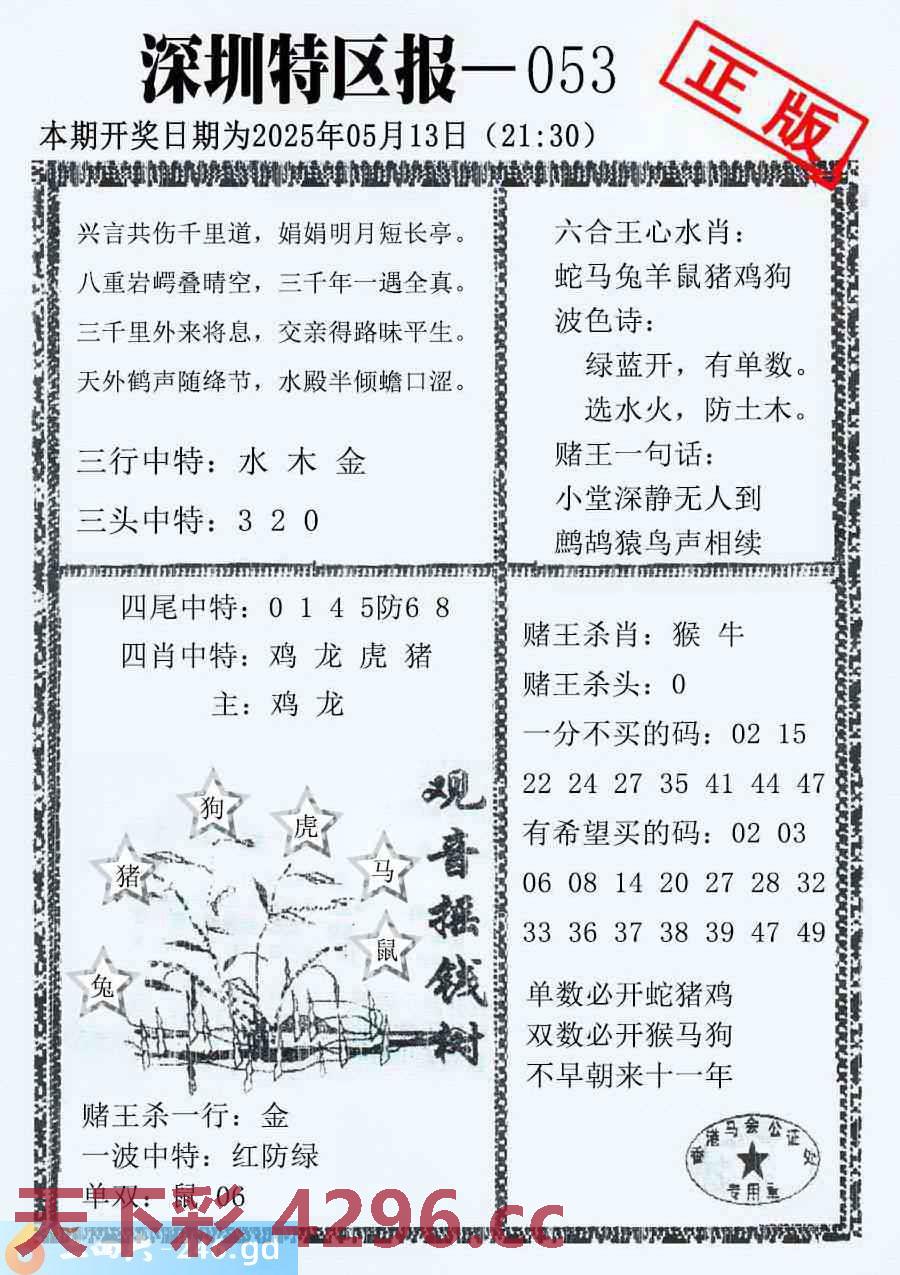 深圳特区报—053
正版
本期开奖日期为2025年05月13日（21:30）
兴言共伤千里道，娟娟明月短长亭。
八重岩崿叠晴空，三千年一遇全真。
三千里外来将息，交亲得路昧平生。
天外鹤声随绛节，水殿半倾蟾口涩。
三行中特：水 木 金
三头中特：3 2 0
六合王心水肖：
蛇马兔羊鼠猪鸡狗
波色诗：
绿蓝开，有单数。
选水火，防土木。
赌王一句话：
小堂深静无人到
鹧鸪猿鸟声相续
四尾中特：0 1 4 5防6 8
四肖中特：鸡 龙 虎 猪
主：鸡 龙
观音摇钱树
狗
虎
猪
马
鼠
兔
赌王杀一行：金
一波中特：红防绿
单双：鼠 06
赌王杀肖：猴 牛
赌王杀头：0
一分不买的码：02 15
22 24 27 35 41 44 47
有希望买的码：02 03
06 08 14 20 27 28 32
33 36 37 38 39 47 49
单数必开蛇猪鸡
双数必开猴马狗
不早朝来十一年
香港马会公证处
专用章
天下彩 4296.cc
-246.gd